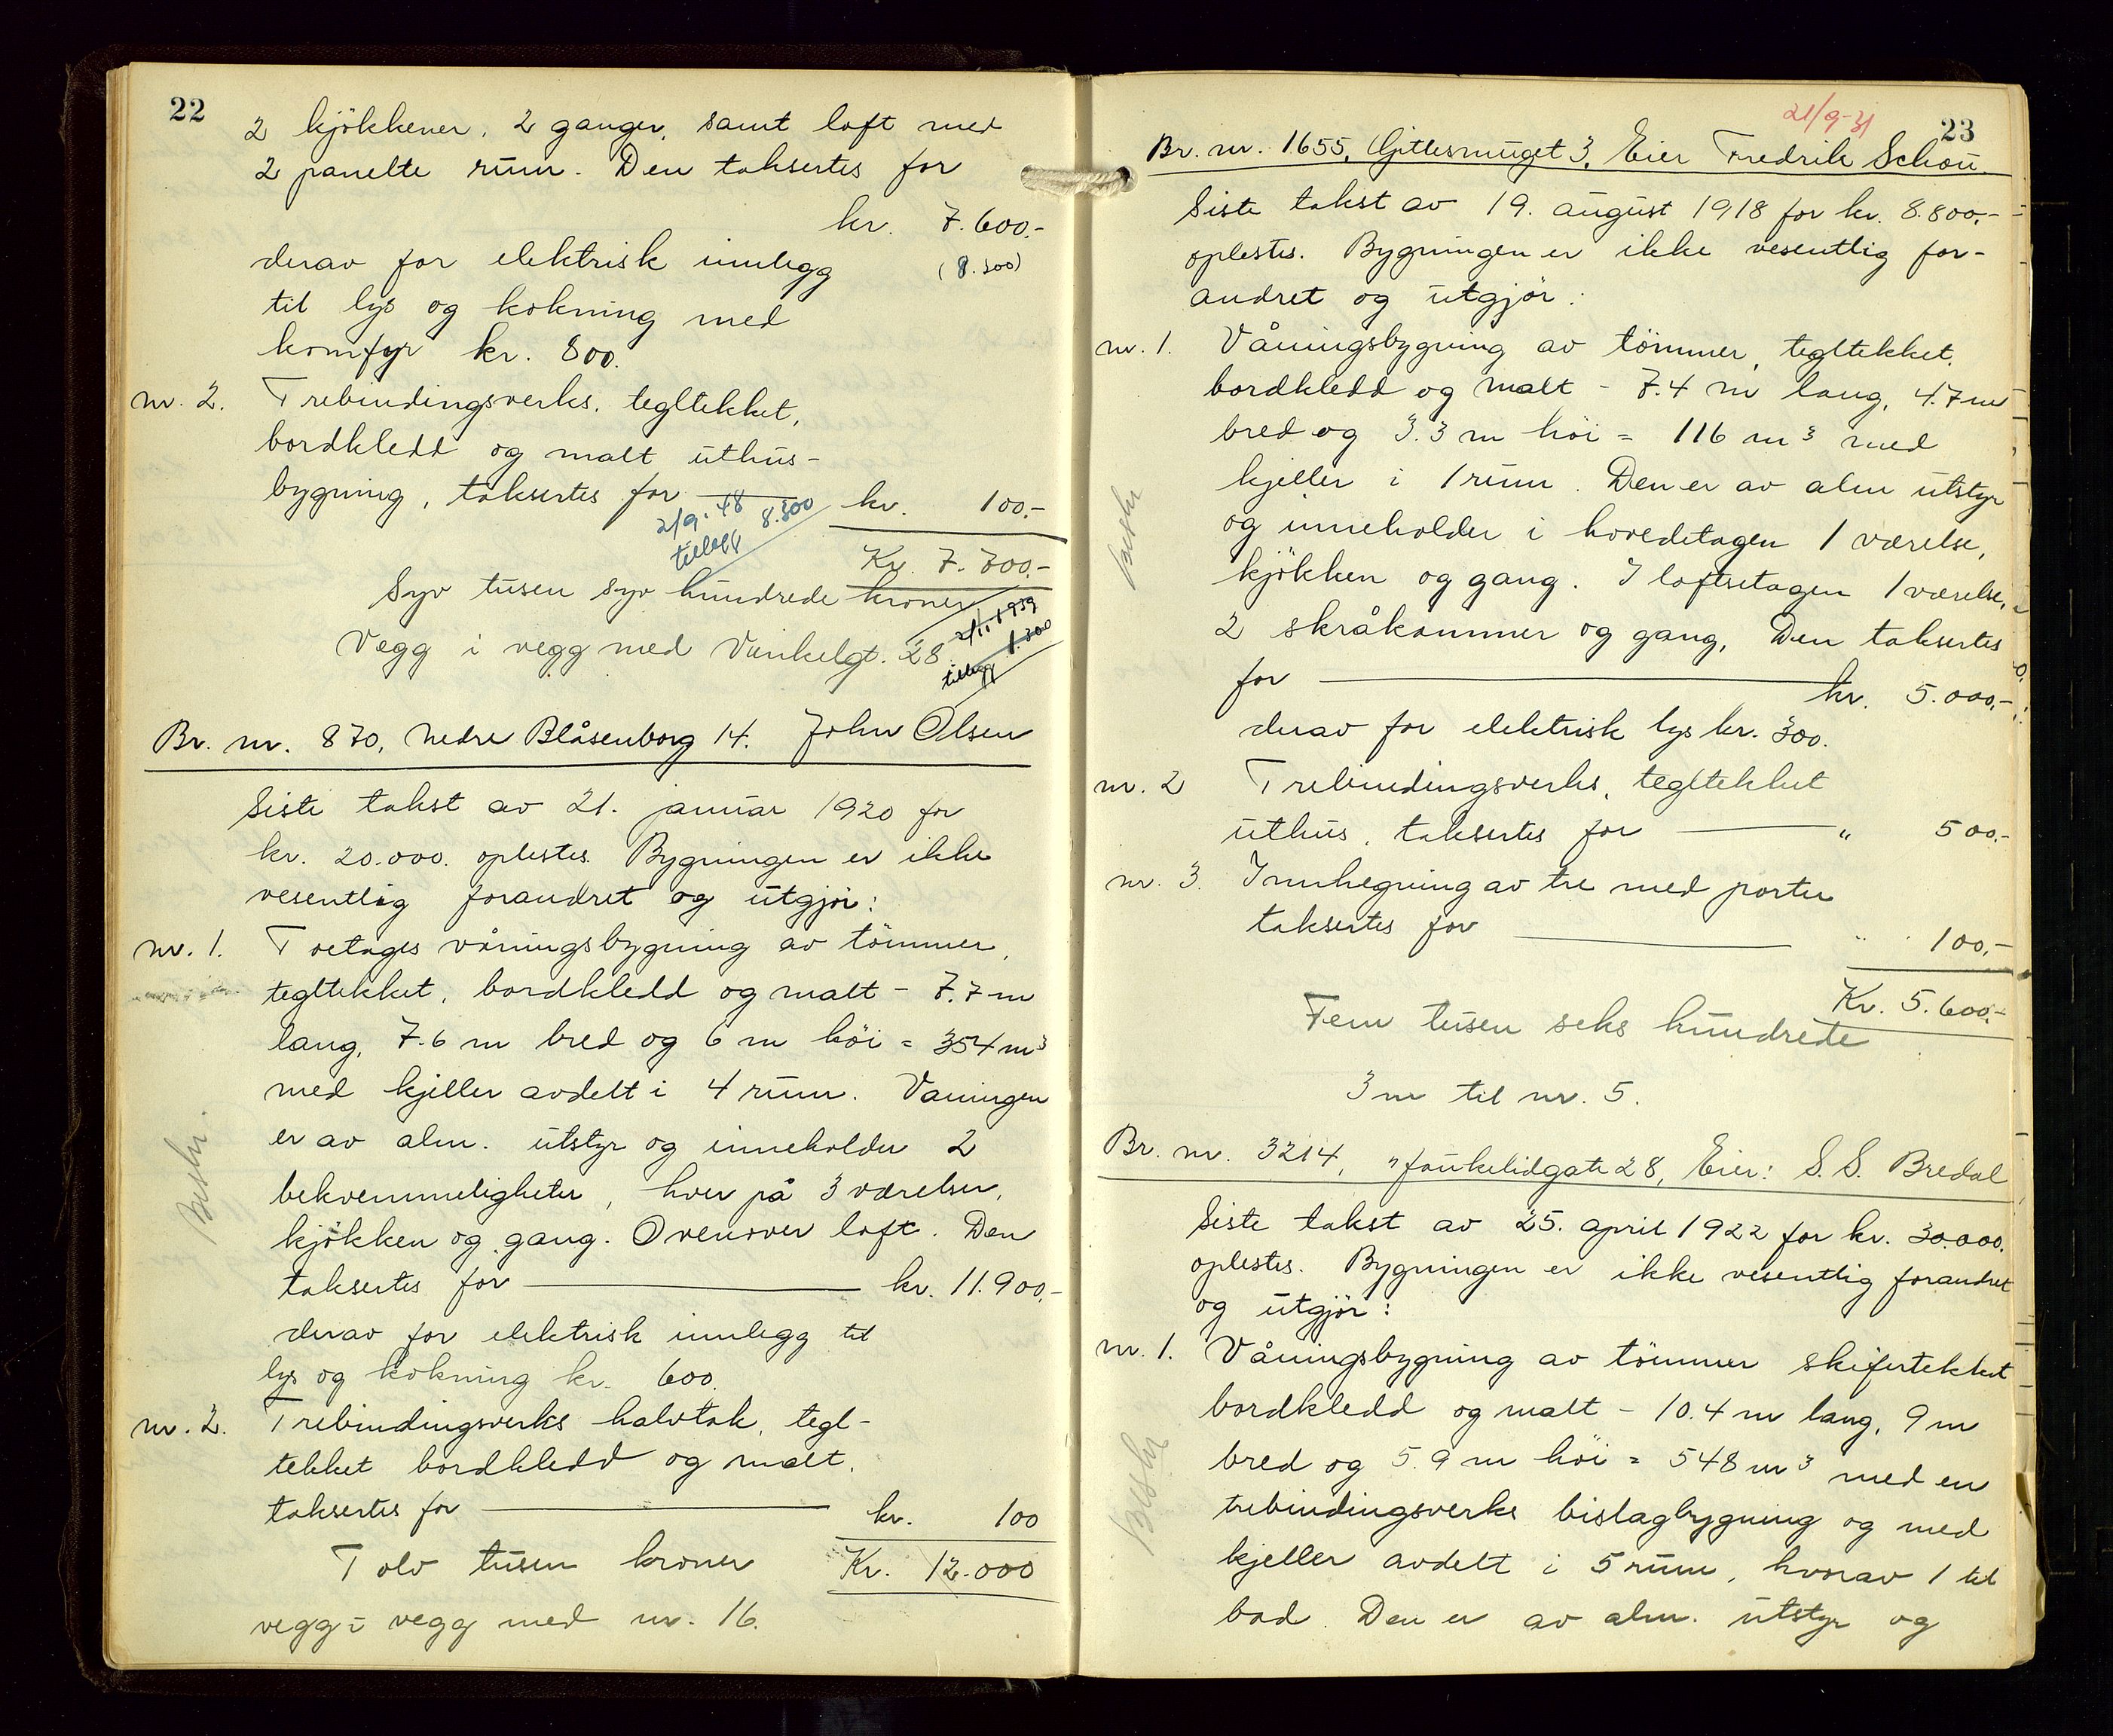 22
2 kjökkener, 2 ganger, samt loft med
2 panelte rum. Den taksertes for
kr. 7.600.-
derav for elektrisk innlegg
til lys og kokning med
komfyr kr. 800.
nr. 2. Trebindingsverks, tegltekket,
bordkledd og malt uthus-
bygning, taksertes for — kr. 100.-
2/9-48
tillegg 8.300
Kr. 7.700.-
Syv tusen syv hundrede kroner
2/11-1939
tillegg 1.300
Vegg i vegg med Vinkelgt. 28
Br. nr. 870, Nedre Blåsenborg 14. John Olsen
Siste takst av 21. januar 1920 for
kr. 20.000. oplestes. Bygningen er ikke
vesentlig forandret og utgjör:
nr. 1. Toetages våningsbygning av tömmer,
tegltekket, bordkledd og malt - 7.7 m
lang, 7.6 m bred og 6 m höi = 354 m3
med kjeller avdelt i 4 rum. Vaningen
er av alm. utstyr og inneholder 2
bekvemmeligheter, hver på 3 værelser,
kjökken og gang. Ovenover loft. Den
taksertes for — kr. 11.900.-
derav for elektrisk innlegg til
lys og kokning kr. 600.
nr. 2. Trebindingsverks halvtak, tegl-
tekket bordkledd og malt,
taksertes for — kr. 100
Tolv tusen kroner Kr. 12.000
vegg i vegg med nr. 16.
21/9-31
23
Br. nr. 1655, Gittesmuget 3, Eier Fredrik Schou.
Siste takst av 19. august 1918 for kr. 8.800.-
oplestes. Bygningen er ikke vesentlig for-
andret og utgjör:
nr. 1. Våningsbygning av tömmer, tegltekket,
bordkledd og malt - 7.4 m lang, 4.7 m
bred og 3.3 m höi = 116 m3 med
kjeller i 1 rum. Den er av alm utstyr
og inneholder i hovedetagen 1 værelse,
kjökken og gang. I loftsetagen 1 værelse,
2 skråkammer og gang, Den taksertes
for — kr. 5.000.-
derav for elektrisk lys kr. 300.
nr. 2 Trebindingsverks, tegltekket
uthus, taksertes for — " 500.-
nr. 3. Innhegning av tre med porter
taksertes for — " 100.-
Kr. 5.600.-
Fem tusen seks hundrede
3 m til nr. 5.
Br. nr. 3214, Jonkelidgate 28, Eier: S. S. Bredal
Siste takst av 25. april 1922 for kr. 30.000.
oplestes. Bygningen er ikke vesentlig forandret
og utgjör:
nr. 1. Våningsbygning av tömmer skifertekket
bordkledd og malt - 10.4 m lang, 9 m
bred og 5.9 m höi = 548 m3 med en
trebindingsverks bislagbygning og med
kjeller avdelt i 5 rum, hvorav 1 til
bad. Den er av alm. utstyr og